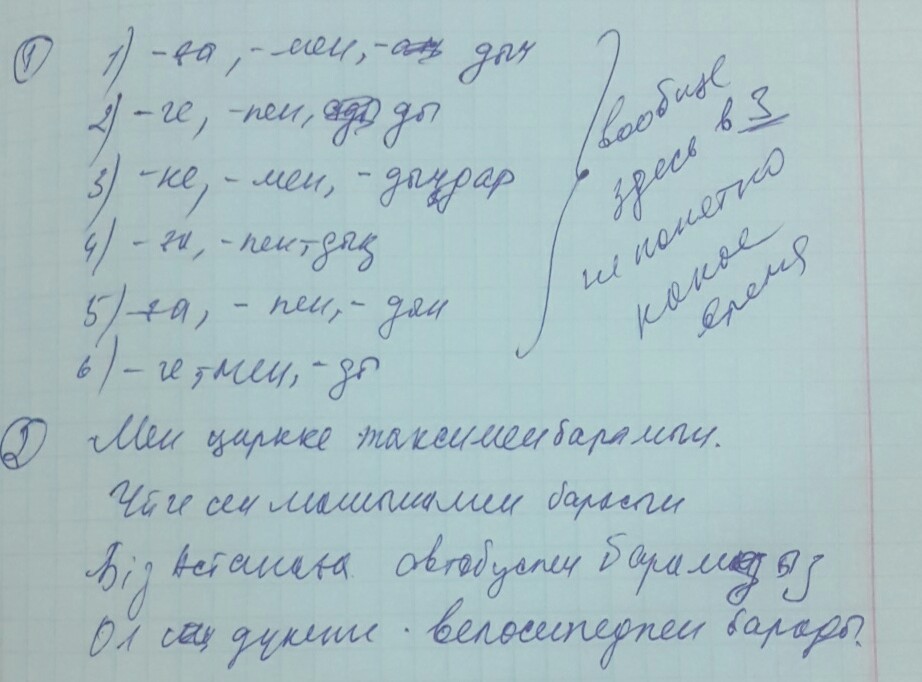 ① 1) -ға, -мен, - дың
2) -ге, -пен, ды
3) -ке, -мен, -дыңдар
4) -га, -пен, -дық
5) -ға, -пен, -
6) -ге, -мен, -ды
вообще
здесь в 3
не понятно
какое
время
② Мен циркке таксимен барамын.
Үйге сен машинамен барасың
Біз Астанаға автобуспен барамыз
Ол велосипедпен барады.